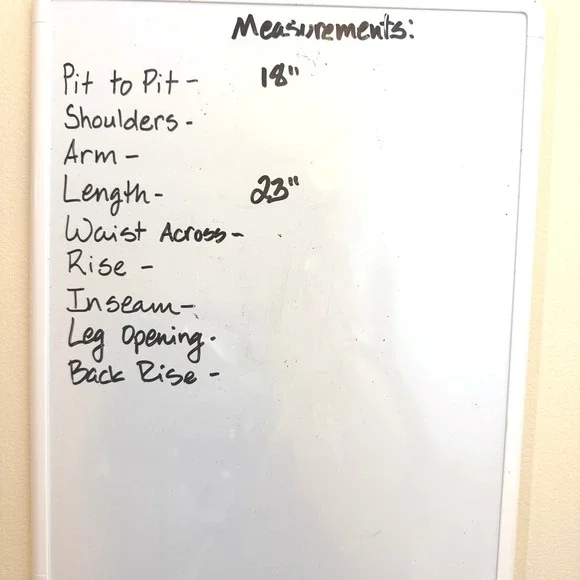 Measurements:
Pit to Pit - 18"
Shoulders -
Arm -
Length - 23"
Waist Across -
Rise -
Inseam -
Leg Opening.
Back Rise -